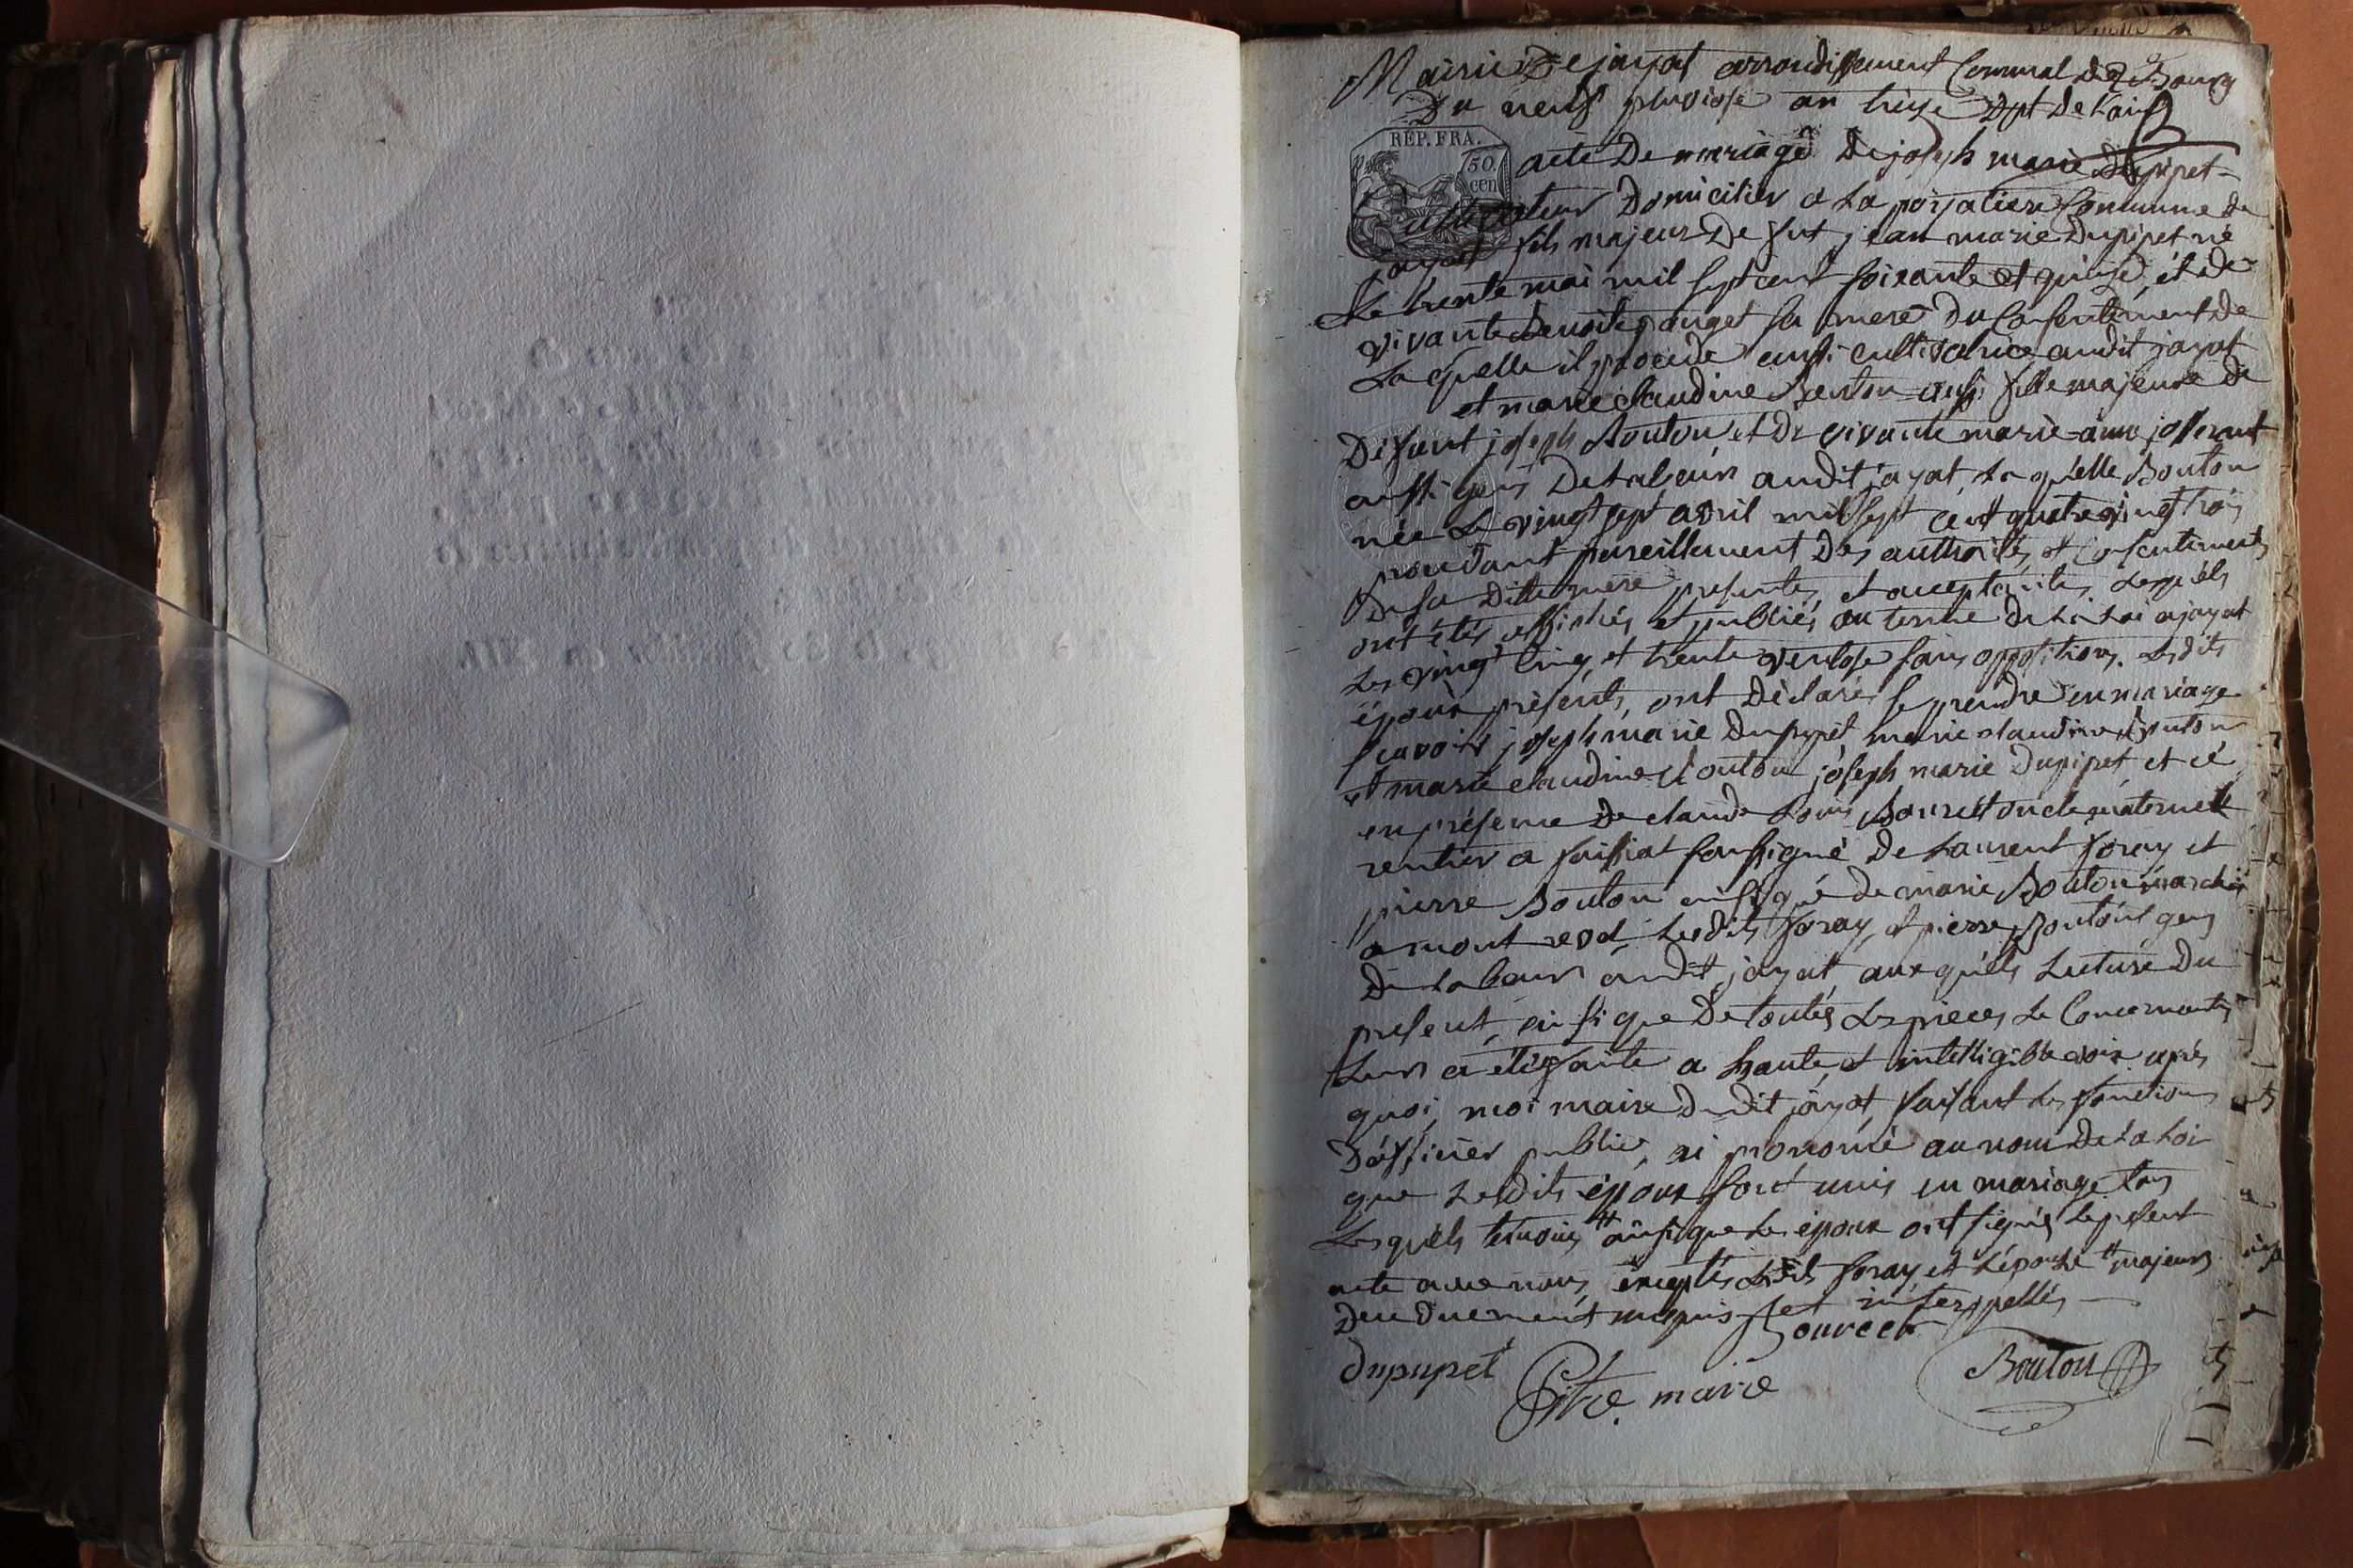 Mairie De jayat arrondissement Communal de Bourg
Du neuf pluviose an treize Dpt De l'ain
REP. FRA.
50.
cen
acte De mariage De joseph marie Dupipet
cultivateur Domicilier a La poijatiere Commune de
jayat fils majeur De fut jean marie Dupipet né
Le trente mai mil sept cent soixante et quinze, et de
vivante Benoite panget sa mere Du Consentement De
La quelle il procede aussi cultivatrice audit jayat
et marie claudine Bouton aussi fille majeure de
Défunt joseph Bouton et De vivante marie-anne
aussi gens De Labeur audit jayat, La quelle Bouton
née Le vingt sept avril mil sept cent quatre vingt trois
procedant pareillement Des authorités, et Consentiments
De sa Ditte mere presente, et acceptante, Lesquels
ont étés affichés et publiés, au terme De La Loi a jayat
Les vingt cinq, et trente ventose sans oppositions. Lesdits
époux présents, ont Déclarés se prendre en mariage
sçavoir joseph marie Dupipet marie claudine Bouton
et marie claudine Bouton joseph marie Dupipet, et cé
en présence De claude Louis Bourcet oncle maternelle
rentier a foissiat soussigné De Laurent foray et
pierre Bouton ainsi que de marie Bouton
a mont revel, Lesdits foray, et pierre Bouton gens
De Labeur audit jayat, aux quels Lecture Du
present, ainsi que De toutes Les pieces Le Concernants
Leur a été faite a haute, et intelligible voix après
quoi, moi maire Dudit jayat, faisant Les fonctions
D'officier public, ai prononcé au nom De La Loi
que Lesdits époux sont unis en mariage tous
Les quels temoins # ainsi que Les époux ont signés Le present
acte avec nous, exceptés Ledit foray et L'épouse # majeurs
Duement requis et interppellés
Bourcet
Dupupet
Pitre. marie
Bouton